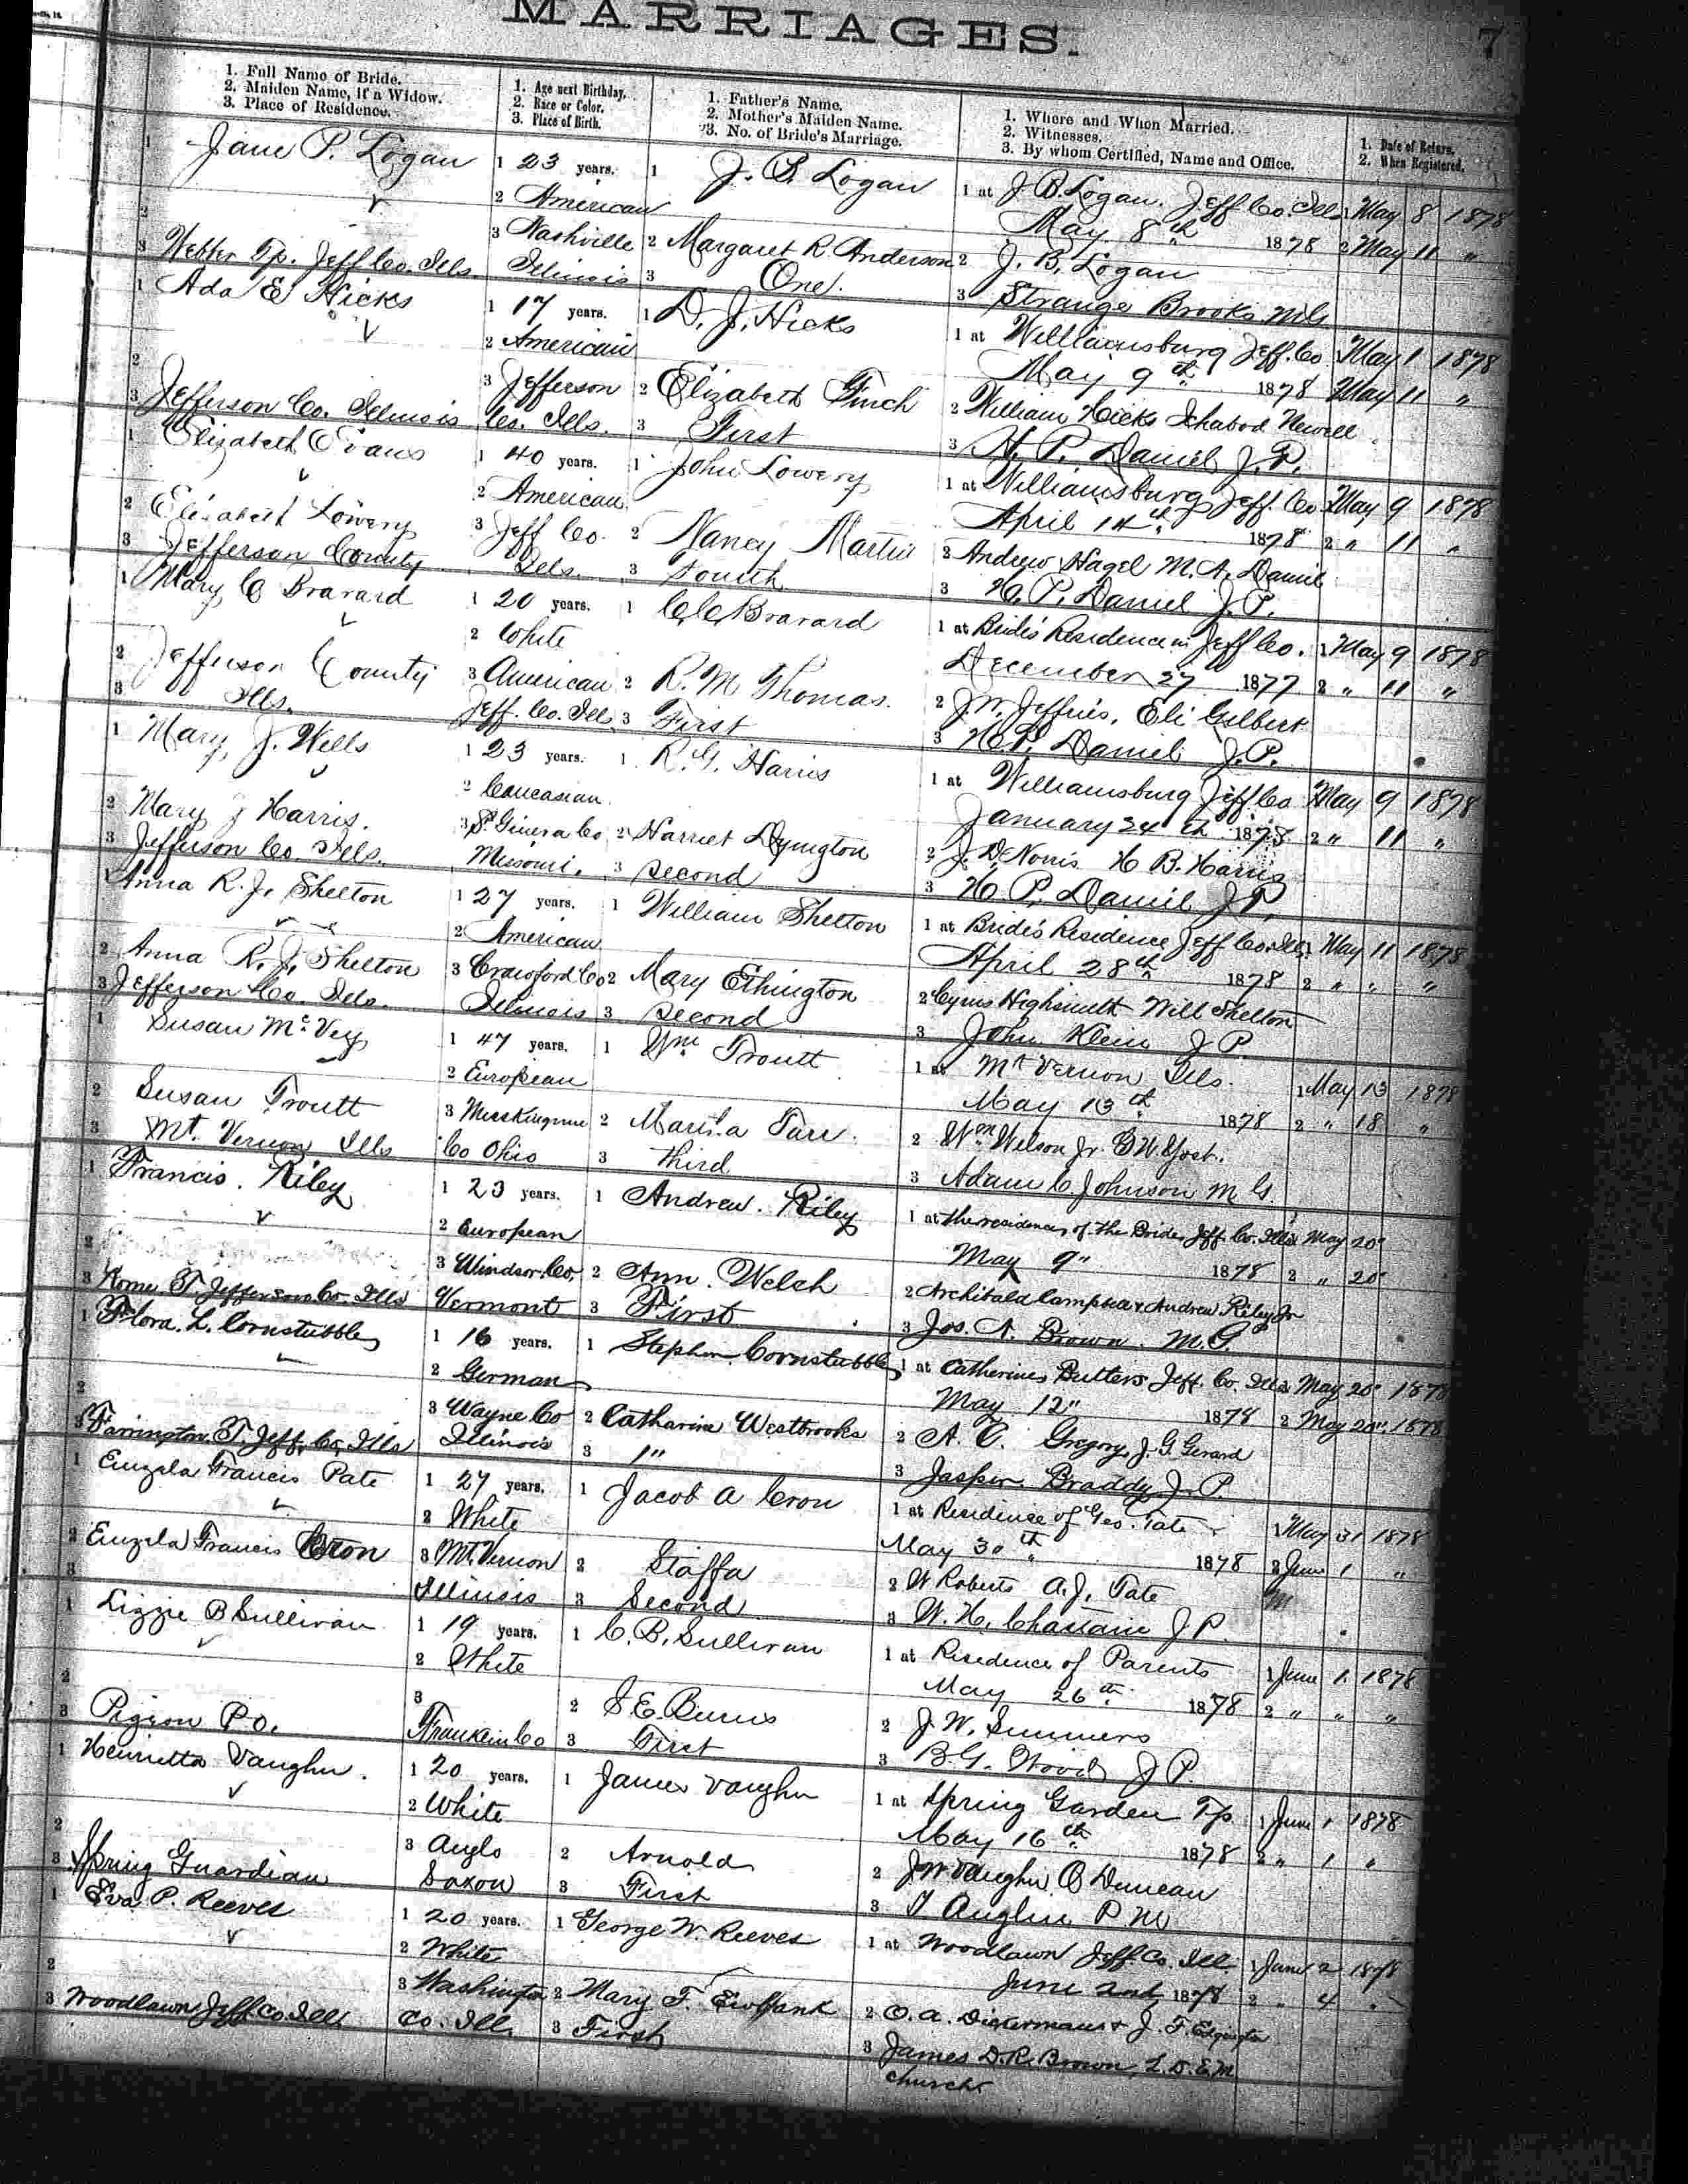 MARRIAGES.
7
1. Full Name of Bride.
2. Maiden Name, if a Widow.
3. Place of Residence.
1. Age next Birthday.
2. Race or Color.
3. Place of Birth.
1. Father's Name.
2. Mother's Maiden Name.
3. No. of Bride's Marriage.
1. Where and When Married.
2. Witnesses.
3. By whom Certified, Name and Office.
1. Date of Return.
2. When Registered.
1 Jane P. Logan
2
3 Webber Tp. Jeff Co. Ills.
1 23 years.
2 American
3 Nashville
Illinois
1 J. B. Logan
2 Margaret R Anderson
3 One.
1 at J. B. Logan. Jeff Co. Ills
May 8th 1878
2 J. B. Logan
3 Strange Brooks MG
1 May 8 1878
2 May 11 "
1 Ada E Hicks
2
3 Jefferson Co. Illinois
1 17 years.
2 American
3 Jefferson
Co. Ills.
1 D. J. Hicks
2 Elizabeth Finch
3 First
1 at Williamsburg Jeff. Co
May 9th 1878
2 William Hicks Ichabod Newell
3 H. P. Daniel J. P.
1 May 1 1878
2 May 11 "
1 Elizabeth Evans
2 Elizabeth Lowery
3 Jefferson County
1 40 years.
2 American
3 Jeff Co.
Ills.
1 John Lowery
2 Nancy Martin
3 Fourth
1 at Williamsburg Jeff. Co
April 14th 1878
2 Andrew Hagel M. A. Daniel
3 H. P. Daniel J. P.
1 May 9 1878
2 " 11 "
1 Mary C Bravard
2 Jefferson County
3 Ills.
1 20 years.
2 White
3 American
Jeff. Co. Ill.
1 C C Bravard
2 R. M Thomas.
3 First
1 at Bride's Residence in Jeff Co.
December 27 1877
2 J. W. Jeffries, Eli Gilbert
3 H. P. Daniel J. P.
1 May 9 1878
2 " 11 "
1 Mary J. Wells
2 Mary J Harris.
3 Jefferson Co. Ills.
1 23 years.
2 Caucasian
3 St. Co
Missouri.
1 R. G. Harris
2 Harriet
3 Second
1 at Williamsburg Jeff Co
January 24th 1878
2 J. D. Norris H B. Harris
3 H. P. Daniel J. P.
1 May 9 1878
2 " 11 "
1 Anna R. J. Shelton
2 Anna R. J. Shelton
3 Jefferson Co. Ills.
1 27 years.
2 American
3 Crawford Co
Illinois
1 William Shelton
2 Mary Ethington
3 Second
1 at Bride's Residence Jeff Co. Ills
April 28th 1878
2 Cyrus Highsmith Will Shelton
3 John Klein J P.
1 May 11 1878
2 " " "
1 Susan McVey
2 Susan Troutt
3 Mt. Vernon Ills
1 47 years.
2 European
3
Co Ohio
1 Wm Troutt
2 Tarr
3 Third
1 at Mt Vernon Ills.
May 13th 1878
2 Wm Wilson Jr. G W Yost.
3 Adam C Johnson M G
1 May 13 1878
2 " 18 "
1 Francis. Riley
2
3 Rome. T Jefferson Co. Ills
1 23 years.
2 European
3 Windsor. Co,
Vermont
1 Andrew. Riley
2 Ann. Welch
3 First
1 at the residence of the Bride, Jeff Co. Ills
May 9" 1878
2 Archibald Campbell & Andrew Riley Jr
3 Jos. A. Brown. M. G.
1 May 20"
2 " 20"
1 Flora. L. Cornstubble
2
3 Farrington. T Jeff. Co. Ills
1 16 years.
2 German
3 Wayne Co
Illinois
1 Stephen. Cornstubble
2 Catharine Westbrooks
3 1"
1 at Catherines Butters Jeff. Co. Ills
May 12" 1878
2 A. C. Gregory J. G. Gerard
3 Jasper Braddy J. P
1 May 20" 1878
2 May 20" 1878
1 Euzela Francis Pate
2 Euzela Francis Cron
3
1 27 years.
2 White
3 Mt. Vernon
Illinois
1 Jacob A Cron
2 Staffa
3 Second
1 at Residence of Geo. Tate
May 30th 1878
2 W Roberts A. J. Tate
3 W. H. Chastain J P.
1 May 31 1878
2 June 1 "
1 Lizzie B Sullivan
2
3 Pigeon P.O.
1 19 years.
2 White
3
Franklin Co
1 C. B. Sullivan
2 S. E. Burns
3 First
1 at Residence of Parents
May 26th 1878
2 J. W. Summers
3 B. G. Wood J P.
1 June 1. 1878
2 " " "
1 Henrietta Vaughn.
2
3 Spring Guardian
1 20 years.
2 White
3 Anglo
Saxon
1 James Vaughn
2 Arnold
3 First
1 at Spring Garden Tp.
May 16th 1878
2 J W Vaughn O Duncan
3 T Anglin P M
1 June 1 1878
2 " 1 "
1 Eva. P. Reeves
2
3 Woodlawn Jeff. Co. Ill.
1 20 years.
2 White
3 Washington
Co. Ill.
1 George W. Reeves
2 Mary F. Ewbank
3 First
1 at Woodlawn Jeff. Co. Ill.
June 2nd, 1878
2 O. A. Dickerman & J. F.
3 James D. R. Brown, L. D. E. M.
church
1 June 2 1878
2 " 4 "